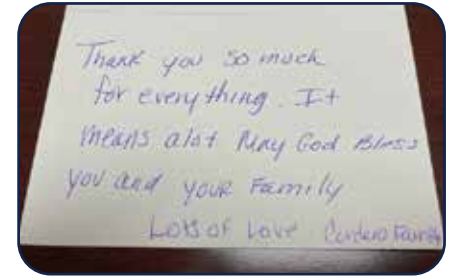 Thank you so much
for everything. It
means alot May God Bless
you and your Family
Lots of Love Cordero Family